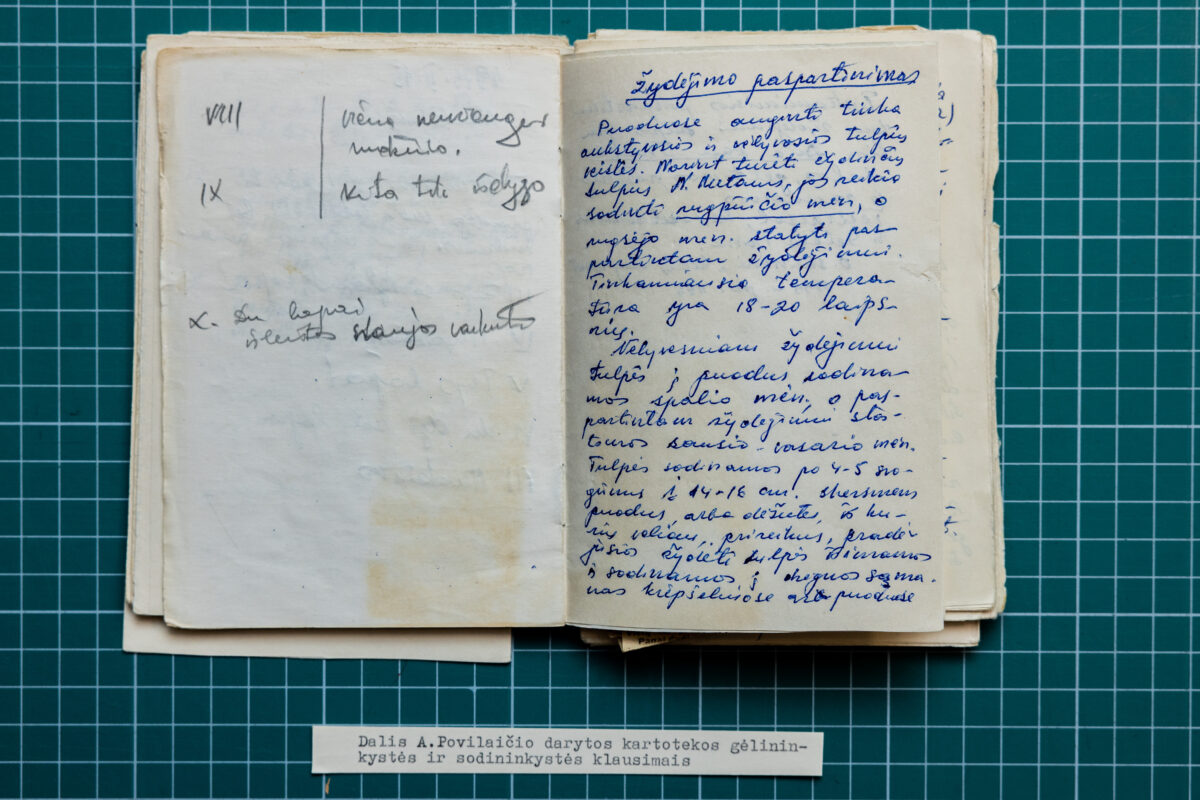 VIII
IX
Kita tik išdygo
X. Du lapai
Žydėjimo paspartinimas
Puoduose auginti tinka
ankstyvosios ir vėlyvosios tulpių
veislės. Norint turėti žydinčių
tulpių N. Metams, jos reikia
sodinti rugpiūčio mėn, o
rugsėjo mėn. statyti pas-
partintam žydėjimui.
Tinkamiausia tempera-
tūra yra 18-20 laips-
nių.
Vėlyvesniam žydėjimui
tulpės į puodus sodina-
mos spalio mėn. o pas-
partintam žydėjimui sta-
tomos sausio-vasario mėn.
Tulpės sodinamos po 4-5 svo-
gūnus į 14-16 cm. skersmens
puodus, arba dėžutes, iš ku-
rių vėliau, prireikus, pradė-
jusios žydėti tulpės išimamos
ir sodinamos į drėgnas sama-
nas krepšeliuose arba puoduose
Dalis A.Povilaičio darytos kartotekos gėlinin-
kystės ir sodininkystės klausimais